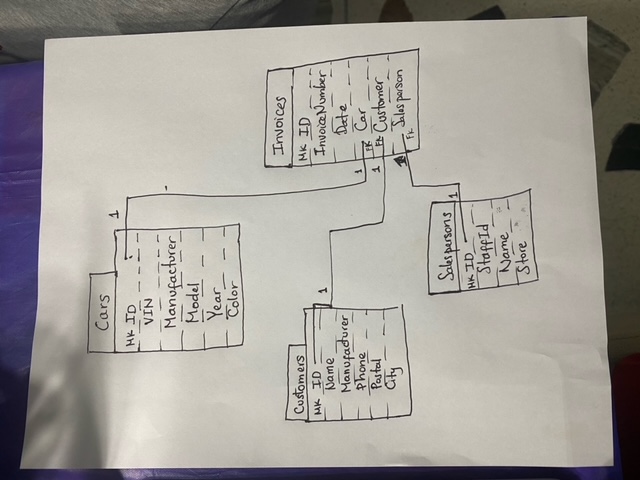 Cars
1
MK ID
VIN
Manufacturer
Model
Year
Color
Customers
MK ID
1
Name
Manufacturer
Phone
Postal
City
Invoices
MK ID
InvoiceNumber
Date
1
FK Car
1
FK Customer
Salesperson
FK
Salespersons
1
MK ID
StaffId
Name
Store